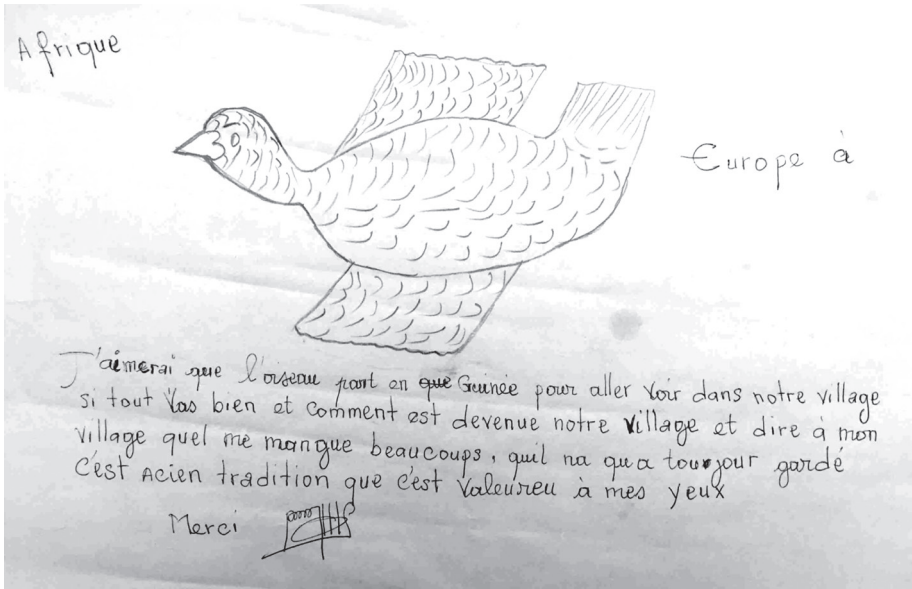 Afrique
Europe à
J'aimerai que l'oiseau part en que Guinée pour aller voir dans notre village
si tout vas bien et comment est devenue notre village et dire à mon
village quel me manque beaucoups, quil na qu a toujour gardé
c'est acien tradition que c'est valeureu à mes yeux
Merci